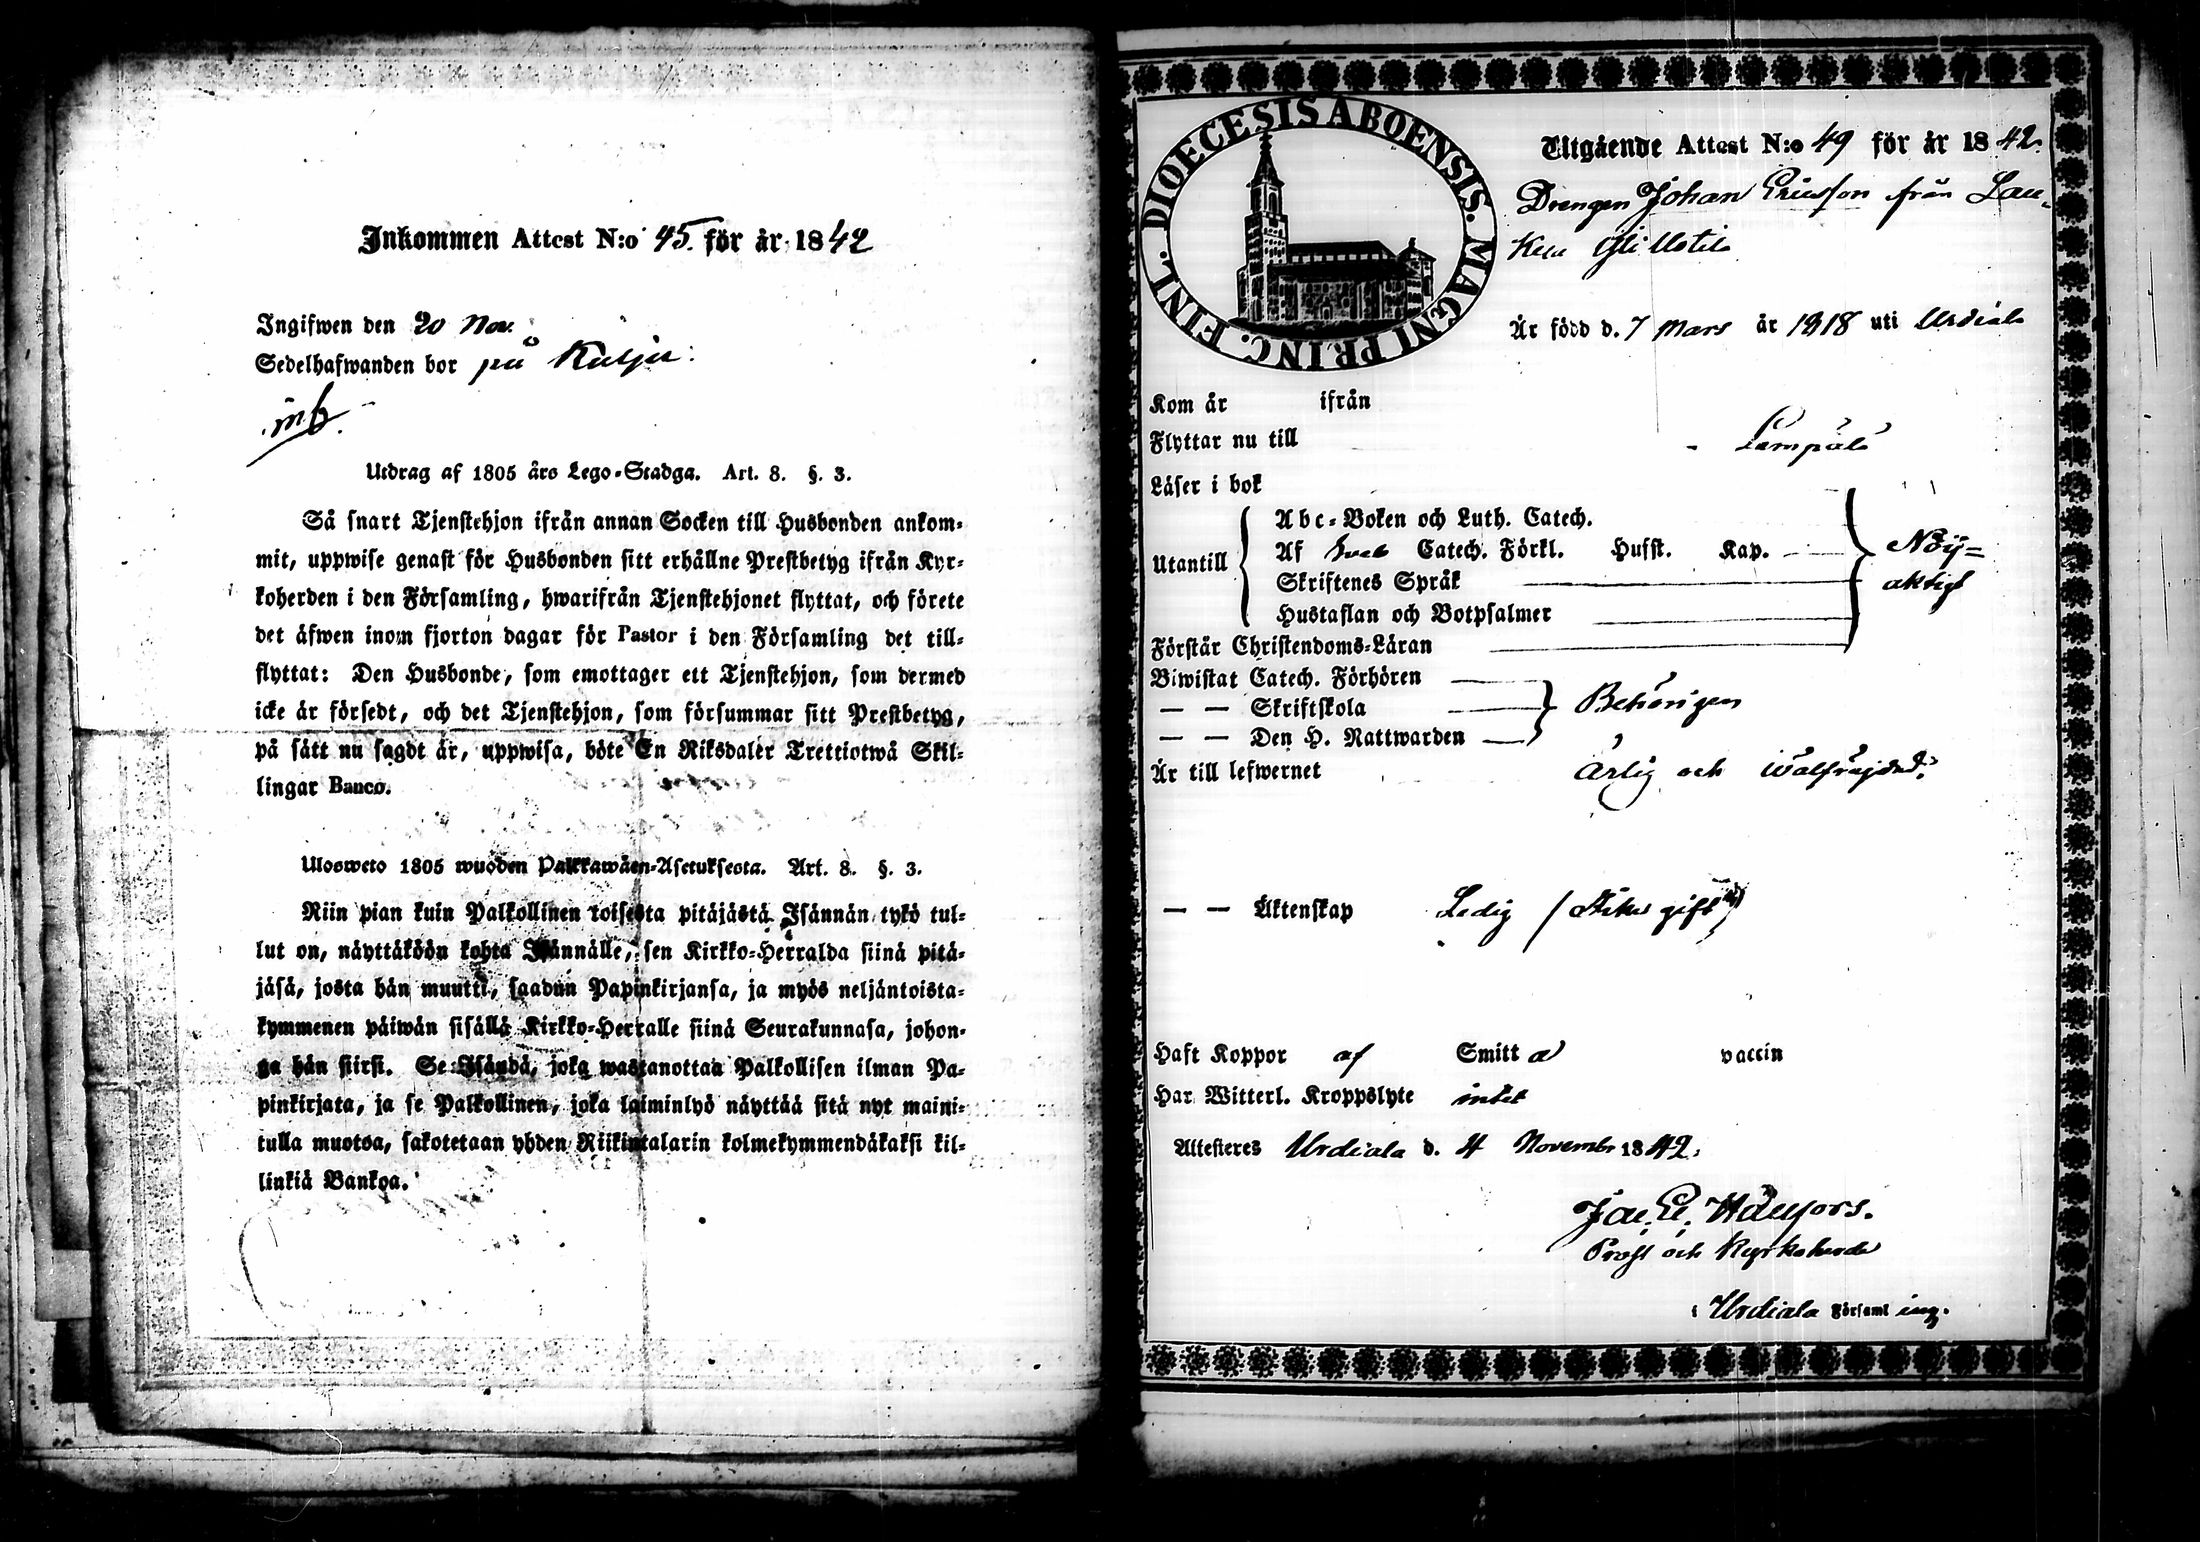 Inkommen Attest N:o 45. för år 1842
Ingifwen den 20 Nov.
Sedelhafwanden bor på Kulju.
inb.
Utdrag af 1805 års Lego-Stadga. Art. 8. §. 3.
Så snart Tjenstehjon ifrån annan Socken till Husbonden ankom-
mit, uppwise genast för Husbonden sitt erhållne Prestbetyg ifrån Kyr-
koherden i den Församling, hwarifrån Tjenstehjonet flyttat, och förete
det äfwen inom fjorton dagar för Pastor i den Församling det till-
flyttat: Den Husbonde, som emottager ett Tjenstehjon, som dermed
icke är försedt, och det Tjenstehjon, som försummar sitt Prestbetyg,
på sätt nu sagdt är, uppwisa, böte En Riksdaler Trettiotwå Skil-
lingar Banco.
Ulosweto 1805 wuoden Palkkawäen-Asetuksesta. Art. 8. §. 3.
Niin pian kuin Palkollinen toisesta pitäjästä Isännän tykö tul-
lut on, näyttäköön kohta Isännälle, sen Kirkko-Herralda siinä pitä-
jäsä, josta hän muutti, saadun Papinkirjansa, ja myös neljäntoista-
kymmenen päiwän sisällä Kirkko-Herralle siinä Seurakunnasa, johon-
ga hän siirsi. Se Isändä, joka wastanottaa Palkollisen ilman Pa-
pinkirjata, ja se Palkollinen, joka laiminlyö näyttää sitä nyt maini-
tulla muotoa, sakotetaan yhden Riikintalarin kolmekymmendäkaksi kil-
linkiä Bankoa.
DIOECESIS ABOENSIS. MAGNI PRINC. FINL.
Utgående Attest N:o 49 för år 1842.
Drengen Johan Ericsson från Lau-
Är född d. 7 Mars år 1818 uti Urdiala
Kom år ifrån
Flyttar nu till Lempälä
Läser i bok
Utantill
Abc-Boken och Luth. Catech.
Af Catech. Förkl. Husst. Kap.
Skriftenes Språk
Hustaflan och Botpsalmer
Nöij-
aktigt
Förstår Christendoms-Läran
Biwistat Catech. Förhören
— — Skriftskola
— — Den H. Nattwarden
Behörigen
Är till lefwernet Ärlig och wälfrägdad.
— — Äktenskap Ledig
Haft Koppor af Smitta vaccin
Har Witterl. Kroppslyte intet
Attesteres Urdiala d. 4 November 1842.
Prost och Kyrkoherde
i Urdiala Församling.